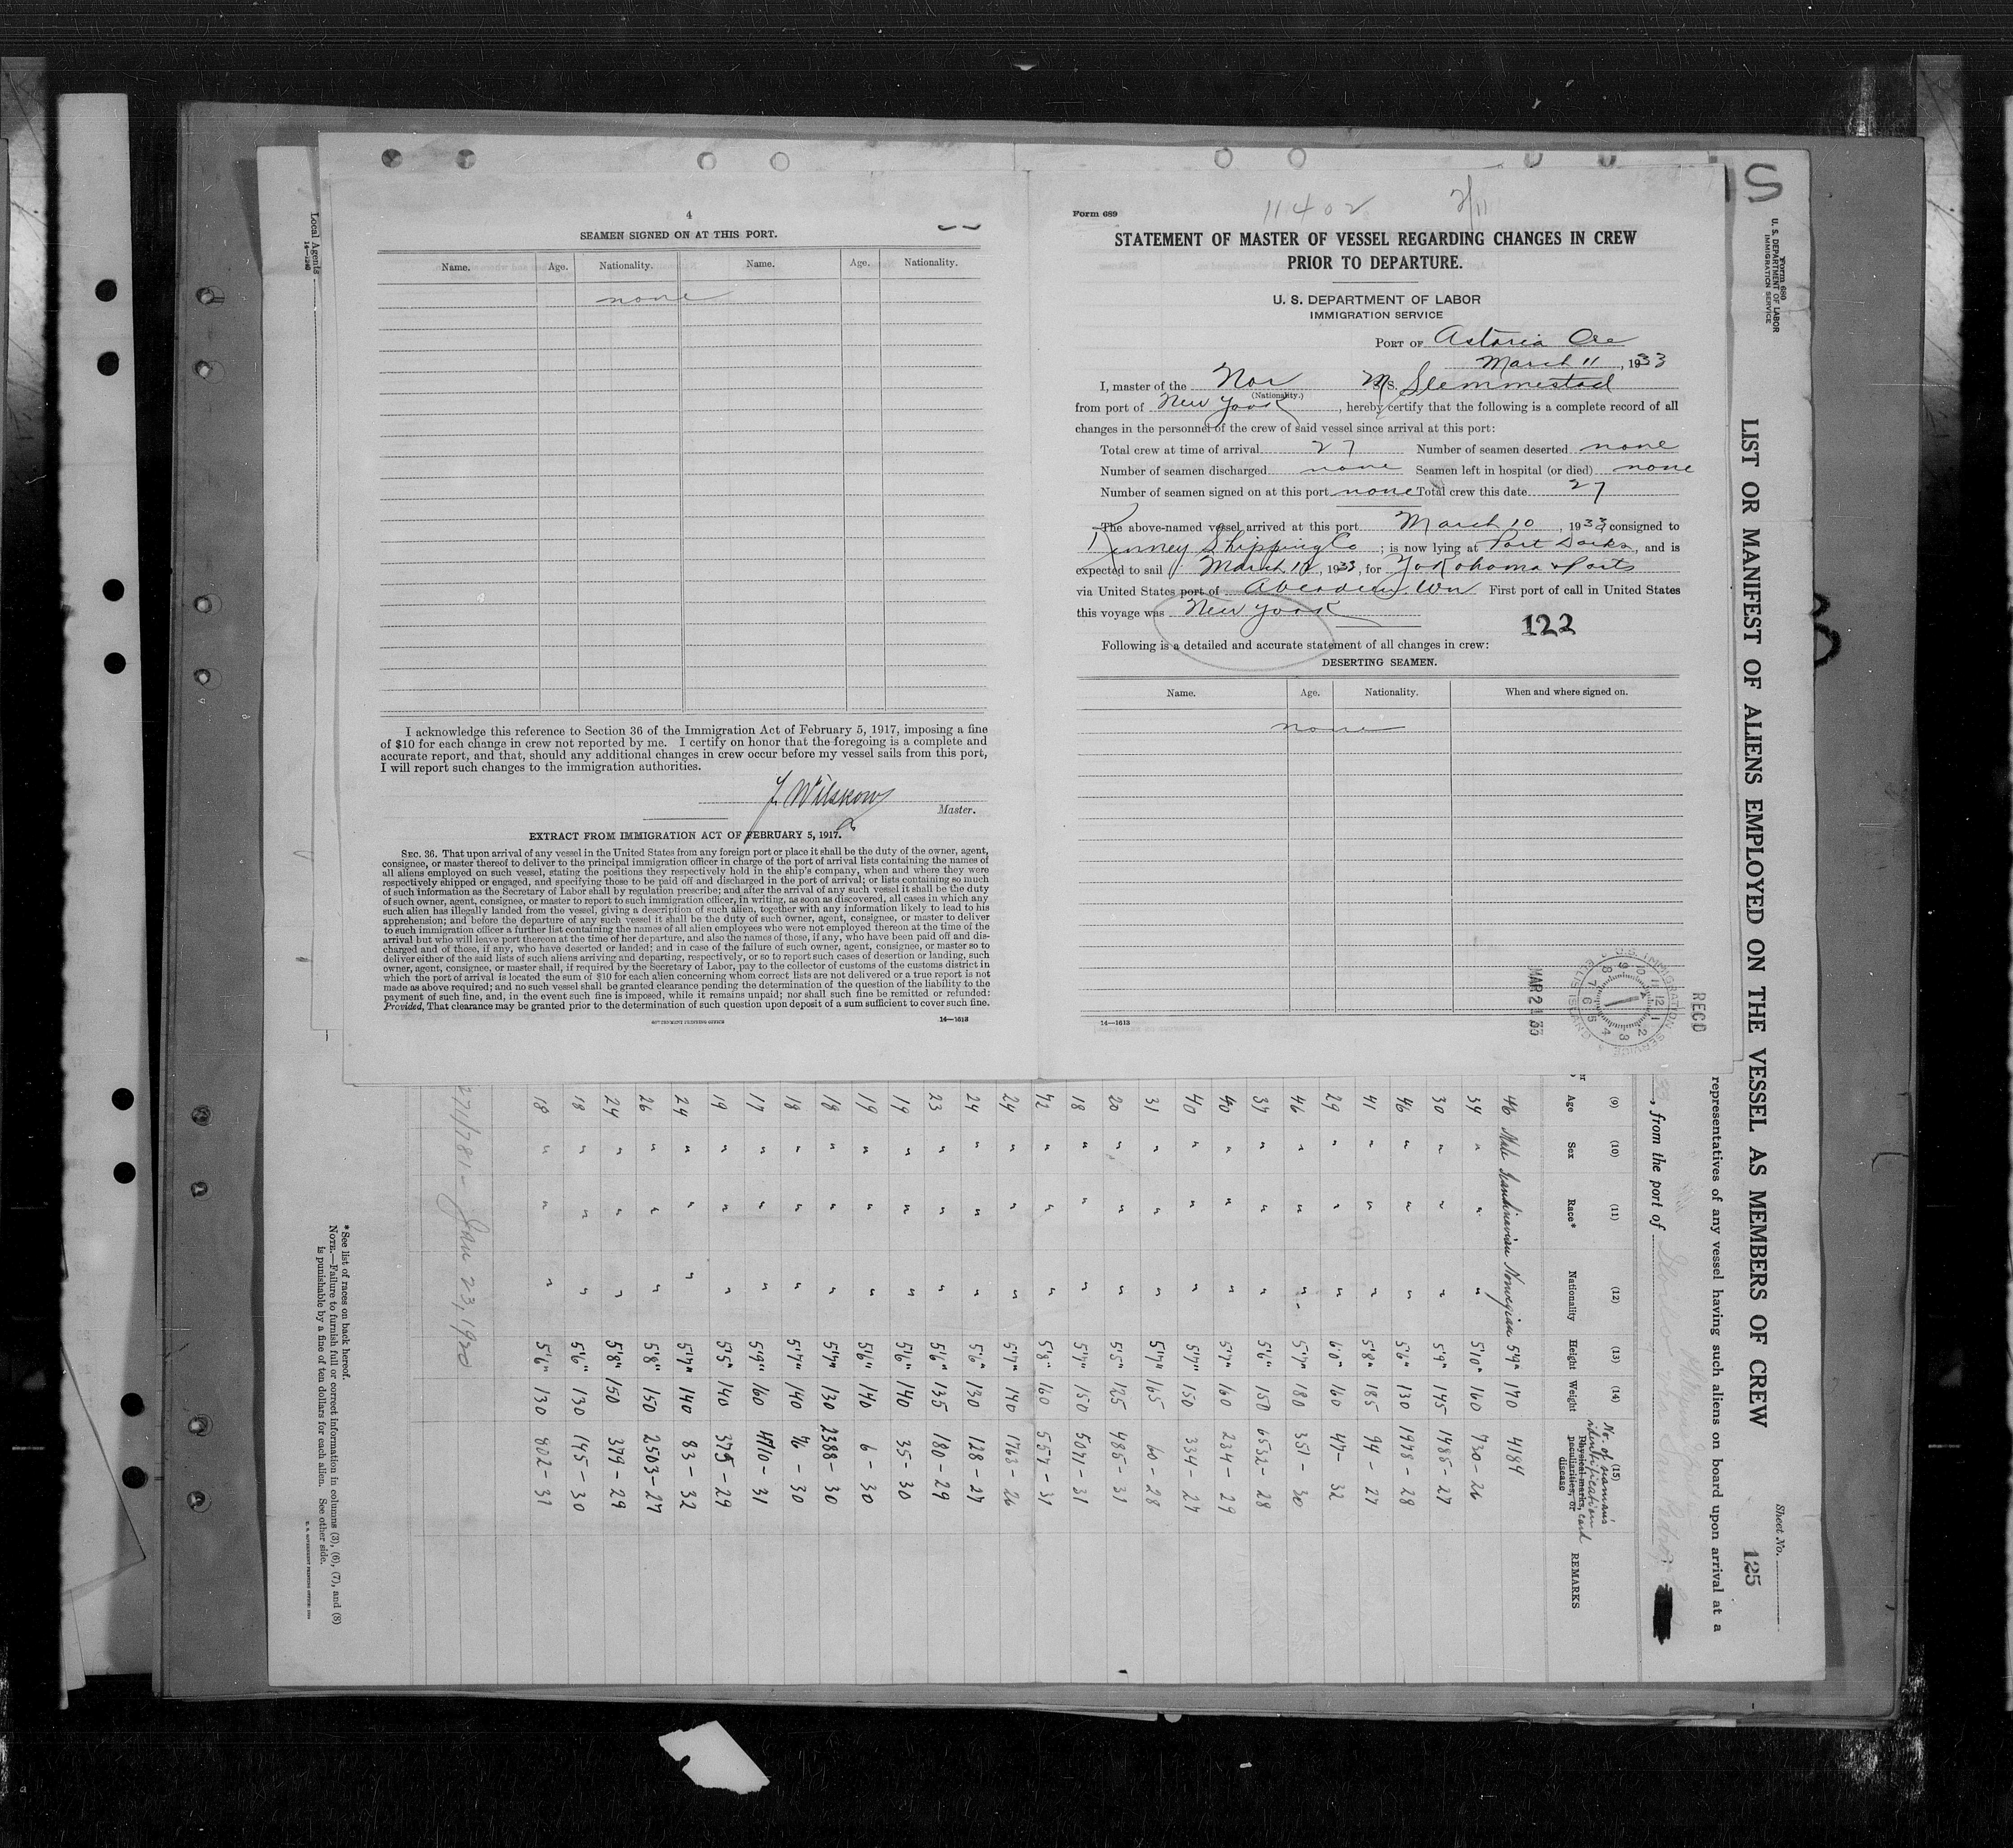 4
SEAMEN SIGNED ON AT THIS PORT.
Name. Age. Nationality. Name. Age. Nationality.
none
I acknowledge this reference to Section 36 of the Immigration Act of February 5, 1917, imposing a fine
of $10 for each change in crew not reported by me. I certify on honor that the foregoing is a complete and
accurate report, and that, should any additional changes in crew occur before my vessel sails from this port,
I will report such changes to the immigration authorities.
Master.
EXTRACT FROM IMMIGRATION ACT OF FEBRUARY 5, 1917.
SEC. 36. That upon arrival of any vessel in the United States from any foreign port or place it shall be the duty of the owner, agent,
consignee, or master thereof to deliver to the principal immigration officer in charge of the port of arrival lists containing the names of
all aliens employed on such vessel, stating the positions they respectively hold in the ship's company, when and where they were
respectively shipped or engaged, and specifying those to be paid off and discharged in the port of arrival; or lists containing so much
of such information as the Secretary of Labor shall by regulation prescribe; and after the arrival of any such vessel it shall be the duty
of such owner, agent, consignee, or master to report to such immigration officer, in writing, as soon as discovered, all cases in which any
such alien has illegally landed from the vessel, giving a description of such alien, together with any information likely to lead to his
apprehension; and before the departure of any such vessel it shall be the duty of such owner, agent, consignee, or master to deliver
to such immigration officer a further list containing the names of all alien employees who were not employed thereon at the time of the
arrival but who will leave port thereon at the time of her departure, and also the names of those, if any, who have been paid off and dis-
charged and of those, if any, who have deserted or landed; and in case of the failure of such owner, agent, consignee, or master so to
deliver either of the said lists of such aliens arriving and departing, respectively, or so to report such cases of desertion or landing, such
owner, agent, consignee, or master shall, if required by the Secretary of Labor, pay to the collector of customs of the customs district in
which the port of arrival is located the sum of $10 for each alien concerning whom correct lists are not delivered or a true report is not
made as above required; and no such vessel shall be granted clearance pending the determination of the question of the liability to the
payment of such fine, and, in the event such fine is imposed, while it remains unpaid; nor shall such fine be remitted or refunded:
Provided, That clearance may be granted prior to the determination of such question upon deposit of a sum sufficient to cover such fine.
GOVERNMENT PRINTING OFFICE 14—1613
Form 689 11402 3/11
STATEMENT OF MASTER OF VESSEL REGARDING CHANGES IN CREW
PRIOR TO DEPARTURE.
U. S. DEPARTMENT OF LABOR
IMMIGRATION SERVICE
PORT OF Astoria Ore
March 11, 1933
I, master of the Nor M/S. Slemmestad
(Nationality.)
from port of New York, hereby certify that the following is a complete record of all
changes in the personnel of the crew of said vessel since arrival at this port:
Total crew at time of arrival 27 Number of seamen deserted none
Number of seamen discharged none Seamen left in hospital (or died) none
Number of seamen signed on at this port none Total crew this date 27
The above-named vessel arrived at this port March 10, 1933 consigned to
Kerney Shipping Co; is now lying at Port Docks, and is
expected to sail March 12, 1933, for Yokohoma & Ports
via United States port of Aberdeen, Wn First port of call in United States
this voyage was New York
122
Following is a detailed and accurate statement of all changes in crew:
DESERTING SEAMEN.
Name. Age. Nationality. When and where signed on.
none
14—1613
MAR 21 33
U.S. IMMIGRATION SERVICE ELLIS ISLAND
RECD
Local Agents
14—1240
Form 680
U. S. DEPARTMENT OF LABOR
IMMIGRATION SERVICE
LIST OR MANIFEST OF ALIENS EMPLOYED ON THE VESSEL AS MEMBERS OF CREW
Sheet No.
125
representatives of any vessel having such aliens on board upon arrival at a
, from the port of
(9) (10) (11) (12) (13) (14) (15)
Age Sex Race* Nationality Height Weight Physical marks, peculiarities, or disease REMARKS
No. of seaman's identification card
46 Male Scandinavian Norwegian 5'9" 170 4184
34 " " " 5'10" 160 730-26
30 " " " 5'9" 145 1485-27
46 " " " 5'6" 130 1978-28
41 " " " 5'8" 185 94-27
29 " " " 6'0" 160 47-32
46 " " " 5'7" 180 351-30
37 " " " 5'6" 150 6532-28
40 " " " 5'7" 160 234-29
40 " " " 5'7" 150 334-27
31 " " " 5'7" 165 60-28
20 " " " 5'5" 125 485-31
18 " " " 5'7" 150 5071-31
42 " " " 5'8" 160 557-31
24 " " " 5'7" 140 1763-26
24 " " " 5'6" 130 128-27
23 " " " 5'6" 135 180-29
19 " " " 5'6" 140 35-30
19 " " " 5'6" 140 6-30
18 " " " 5'7" 130 2388-30
18 " " " 5'7" 140 76-30
17 " " " 5'9" 160 4710-31
19 " " " 5'5" 140 375-29
24 " " " 5'7" 140 83-32
26 " " " 5'8" 150 2503-27
24 " " " 5'8" 150 379-29
18 " " " 5'6" 130 145-30
18 " " " 5'6" 130 802-31
271/781- Jan 23, 1920
*See list of races on back hereof.
NOTE.—Failure to furnish full or correct information in columns (3), (6), (7), and (8)
is punishable by a fine of ten dollars for each alien. See other side.